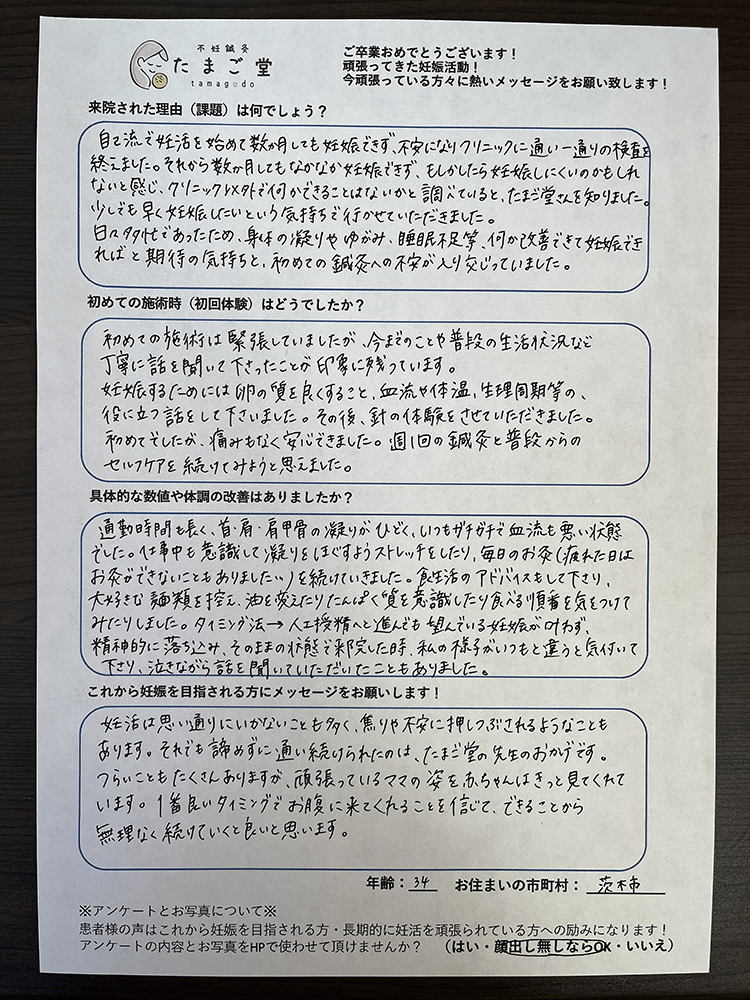 不妊鍼灸
たまご堂
tamagodo
ご卒業おめでとうございます！
頑張ってきた妊娠活動！
今頑張っている方々に熱いメッセージをお願い致します！
来院された理由（課題）は何でしょう？
自己流で妊活を始めて数か月しても妊娠できず、不安になりクリニックに通い一通りの検査を
終えました。それから数か月してもなかなか妊娠できず、もしかしたら妊娠しにくいのかもしれ
ないと感じ、クリニック以外で何かできることはないかと調べていると、たまご堂さんを知りました。
少しでも早く妊娠したいという気持ちで行かせていただきました。
日々多忙であったため、身体の凝りやゆがみ、睡眠不足等、何か改善できて妊娠でき
ればと期待の気持ちと、初めての鍼灸への不安が入り交じっていました。
初めての施術時（初回体験）はどうでしたか？
初めての施術は緊張していましたが、今までのことや普段の生活状況など
丁寧に話を聞いて下さったことが印象に残っています。
妊娠するためには卵の質を良くすること、血流や体温、生理周期等の、
役に立つ話をして下さいました。その後、針の体験をさせていただきました。
初めてでしたが、痛みもなく安心できました。週1回の鍼灸と普段からの
セルフケアを続けてみようと思えました。
具体的な数値や体調の改善はありましたか？
通勤時間も長く、首・肩・肩甲骨の凝りがひどく、いつもガチガチで血流も悪い状態
でした。仕事中も意識して凝りをほぐすようストレッチをしたり、毎日のお灸（疲れた日は
お灸ができないこともありました…）を続けていきました。食生活のアドバイスもして下さり、
大好きな麺類を控え、油を変えたりたんぱく質を意識したり食べる順番を気をつけて
みたりしました。タイミング法→人工授精へと進んでも望んでいる妊娠が叶わず、
精神的に落ち込み、そのままの状態で来院した時、私の様子がいつもと違うと気付いて
下さり、泣きながら話を聞いていただいたこともありました。
これから妊娠を目指される方にメッセージをお願いします！
妊活は思い通りにいかないことも多く、焦りや不安に押しつぶされるようなことも
あります。それでも諦めずに通い続けられたのは、たまご堂の先生のおかげです。
つらいこともたくさんありますが、頑張っているママの姿を赤ちゃんはきっと見てくれて
います。1番良いタイミングでお腹に来てくれることを信じて、できることから
無理なく続けていくと良いと思います。
年齢：34 お住まいの市町村：茨木市
※アンケートとお写真について※
患者様の声はこれから妊娠を目指される方・長期的に妊活を頑張られている方への励みになります！
アンケートの内容とお写真をHPで使わせて頂けませんか？ （はい・顔出し無しならOK・いいえ）